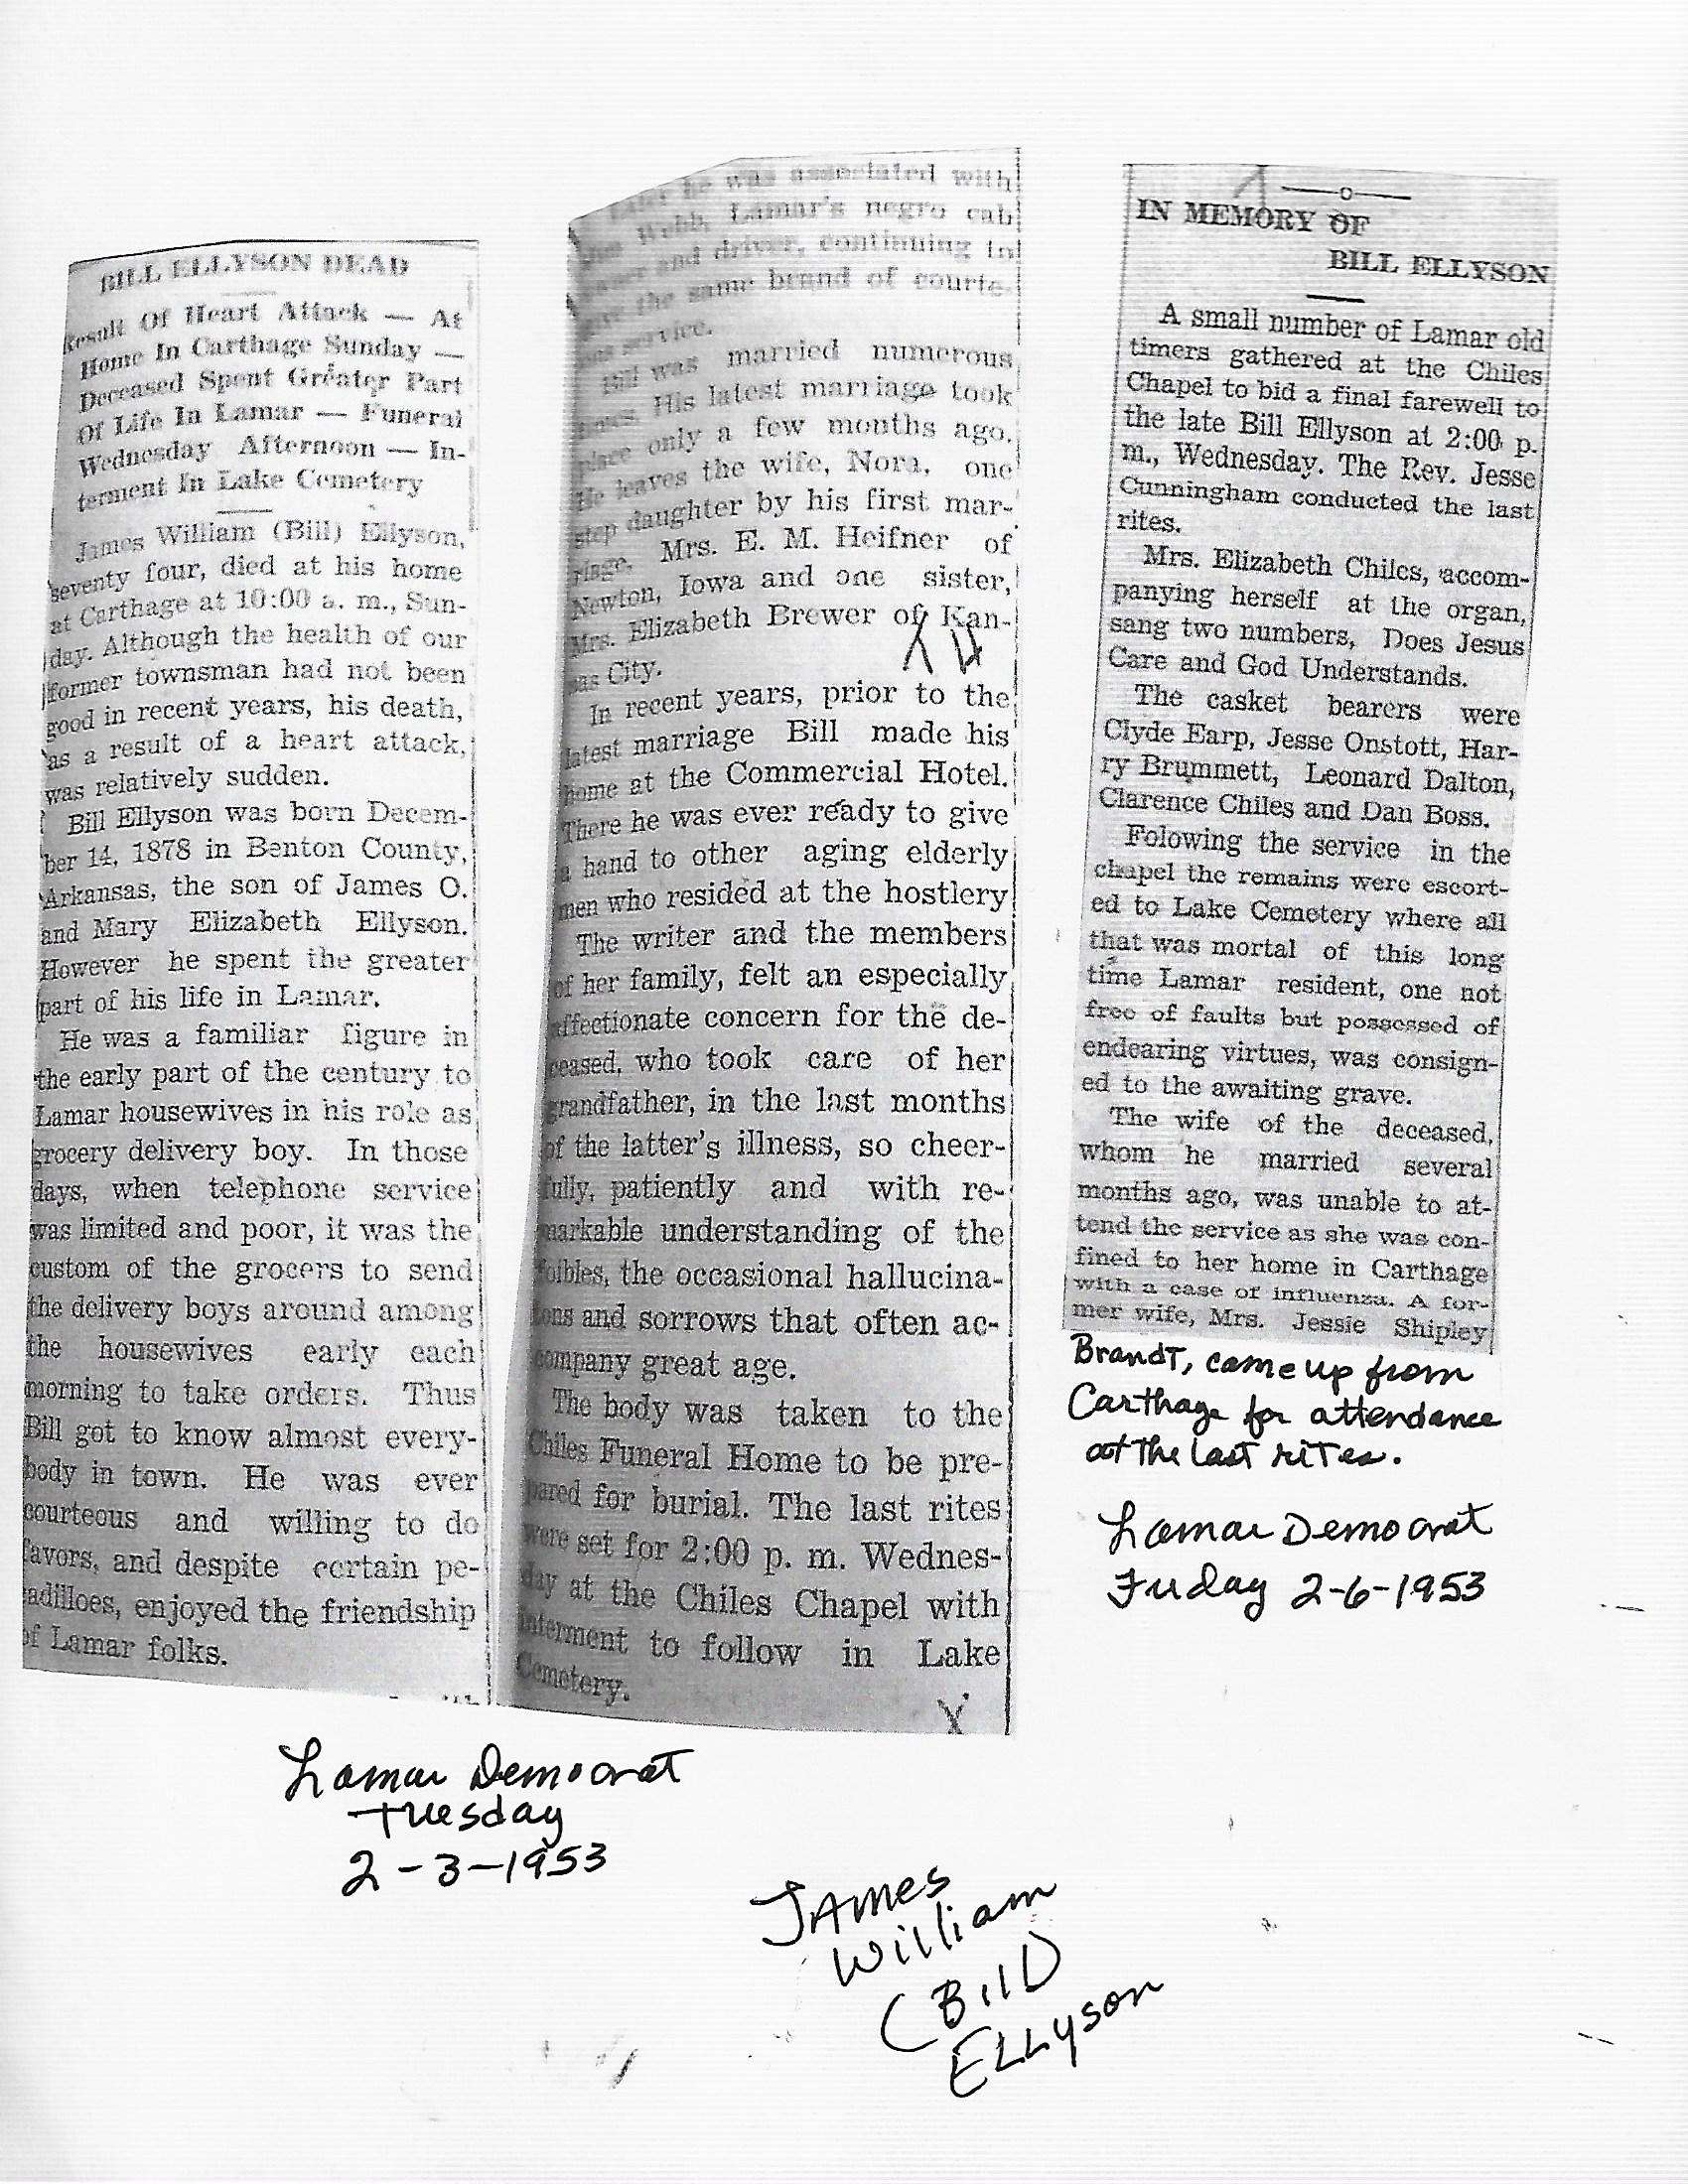 BILL ELLYSON DEAD
Result Of Heart Attack — At
Home In Carthage Sunday —
Deceased Spent Greater Part
Of Life In Lamar — Funeral
Wednesday Afternoon — In-
terment In Lake Cemetery
James William (Bill) Ellyson,
seventy four, died at his home
at Carthage at 10:00 a. m., Sun-
day. Although the health of our
former townsman had not been
good in recent years, his death,
as a result of a heart attack,
was relatively sudden.
Bill Ellyson was born Decem-
ber 14, 1878 in Benton County,
Arkansas, the son of James O.
and Mary Elizabeth Ellyson.
However he spent the greater
part of his life in Lamar.
He was a familiar figure in
the early part of the century to
Lamar housewives in his role as
grocery delivery boy. In those
days, when telephone service
was limited and poor, it was the
custom of the grocers to send
the delivery boys around among
the housewives early each
morning to take orders. Thus
Bill got to know almost every-
body in town. He was ever
courteous and willing to do
favors, and despite certain pe-
adilloes, enjoyed the friendship
of Lamar folks.
Later he was associated with
Webb, Lamar's negro cab
and driver, continuing to
give the same brand of courte-
ous service.
Bill was married numerous
times. His latest marriage took
place only a few months ago.
He leaves the wife, Nora, one
step daughter by his first mar-
riage, Mrs. E. M. Heifner of
Newton, Iowa and one sister,
Mrs. Elizabeth Brewer of Kan-
sas City.
In recent years, prior to the
latest marriage Bill made his
home at the Commercial Hotel.
There he was ever ready to give
a hand to other aging elderly
men who resided at the hostlery
The writer and the members
of her family, felt an especially
affectionate concern for the de-
ceased, who took care of her
grandfather, in the last months
of the latter's illness, so cheer-
fully, patiently and with re-
markable understanding of the
foibles, the occasional hallucina-
tons and sorrows that often ac-
company great age.
The body was taken to the
Chiles Funeral Home to be pre-
pared for burial. The last rites
were set for 2:00 p. m. Wednes-
day at the Chiles Chapel with
interment to follow in Lake
Cemetery.
X
IN MEMORY OF
BILL ELLYSON
A small number of Lamar old
timers gathered at the Chiles
Chapel to bid a final farewell to
the late Bill Ellyson at 2:00 p.
m., Wednesday. The Rev. Jesse
Cunningham conducted the last
rites.
Mrs. Elizabeth Chiles, accom-
panying herself at the organ,
sang two numbers, Does Jesus
Care and God Understands.
The casket bearers were
Clyde Earp, Jesse Onstott, Har-
ry Brummett, Leonard Dalton,
Clarence Chiles and Dan Boss.
Folowing the service in the
chapel the remains were escort-
ed to Lake Cemetery where all
that was mortal of this long
time Lamar resident, one not
free of faults but possessed of
endearing virtues, was consign-
ed to the awaiting grave.
The wife of the deceased,
whom he married several
months ago, was unable to at-
tend the service as she was con-
fined to her home in Carthage
with a case of influenza. A for-
mer wife, Mrs. Jessie Shipley
Brandt, came up from
Carthage for attendance
at the last rites.
Lamar Democrat
Friday 2-6-1953
Lamar Democrat
Tuesday
2-3-1953
James
William
(Bill)
Ellyson